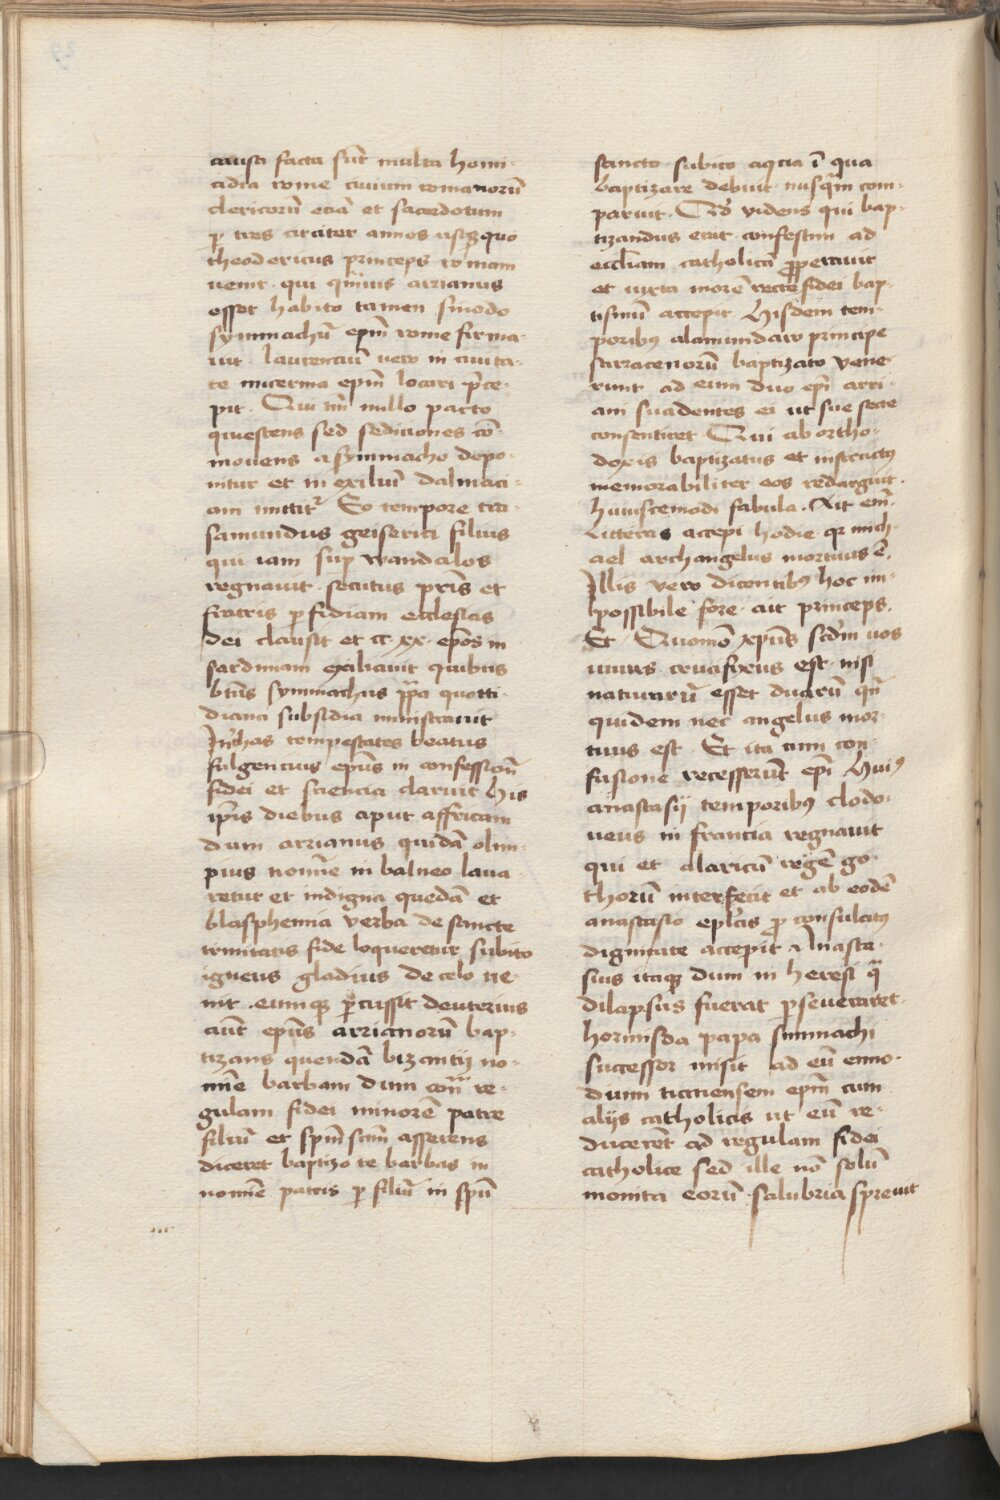 causa facta sūt multa homi-
cidia rome ciuium romanorū
clericorū eciā et sacerdotum
ꝑ tres circiter annos usqꝫ quo
theodericus princeps romam
uenit · qui qͣmuis arrianus
esset habito tamen sinodo
symmachū ep̄m rome firma-
uit · laurenciū uero in ciuita-
te nucerina ep̄m locari p̄ce-
pit · Qui tn̄ nullo pacto
quiescens sed sediciones cō-
mouens a symmacho depo-
nitur et in exiliū dalmaci-
am mittitᷣ Eo tempore tra-
samundus geiserici filius
qui iam sup wandalos
regnauit · secutus pr̄is et
fratris ꝑfidiam ecclesias
dei clausit et cc xx · ep̄os in
sardiniam exiliauit quibus
btūs symmachus pp̄a quotti-
diana subsidia ministrauit
In̄ has tempestates beatus
fulgencius ep̄us in confessiōn
fidei et sciencia claruit His
ip̄is diebus aput affricam
dum arrianus quidā olim-
pius nomīe in balneo laua-
retur et indigna quedā et
blasphemia verba de sancte
trinitatis fide loqueretur subito
igneus gladius de celo ue-
nit · eumqꝫ ꝑcussit deuterius
aūt ep̄us arrianorū bap-
tizans quendā bizantij no-
mīe barbam dum cont̄ re-
gulam fidei minorē patre
filiū et sp̄m sc̄m asserens
diceret baptizo te barbas in
nomīe patris ꝑ filiū in sp̄u
sancto · subito aqua ī qua
baptizare debuit nusqͣm com-
paruit · Qd̄ videns qui bap-
tizandus erat confestim ad
eccl̄iam catholicā ꝓperauit
et iuxta morē recte fidei bap-
tismū accepit · Hisdem tem-
poribꝰ alamundaro principe
sarracenorū baptizato vene-
runt ad eum duo ep̄i arri-
ani suadentes ei ut sue secte
consentiret Qui ab ortho-
doxis baptizatus et instructꝰ
memorabiliter eos redarguit ·
huiuscemodi fabula · Ait em̄
Litteras accepi hodie qꝛ mich-
ael archangelus mortuus ē ·
Illis vero dicentibꝰ hoc im-
possibile fore · ait princeps ·
Et Quomō xpūs scd̄m uos
uiuus crucifixus est · nisi
naturarū esset duarū qn̄
quidem nec angelus mor-
tuus est · Et ita cum con-
fusione recesserūt ep̄i Huiꝰ
anastasij temporibꝰ clodo-
ueus in francia regnauit
qui et alaricū regē go-
thorū interfecit et ab eodē
anastasio ep̄lis ꝓ consulatꝰ
dignitate accepit Anasta-
sius itaqꝫ dum in heresi qͣ
dilapsus fuerat ꝑseueraret ·
hormisda papa simmachi
successor misit ad eū enno-
dium ticinensem ep̄m cum
alijs catholicis ut eū re-
ducerēt ad regulam fidei
catholice sed ille nō solū
monita eorū · salubria spreuit